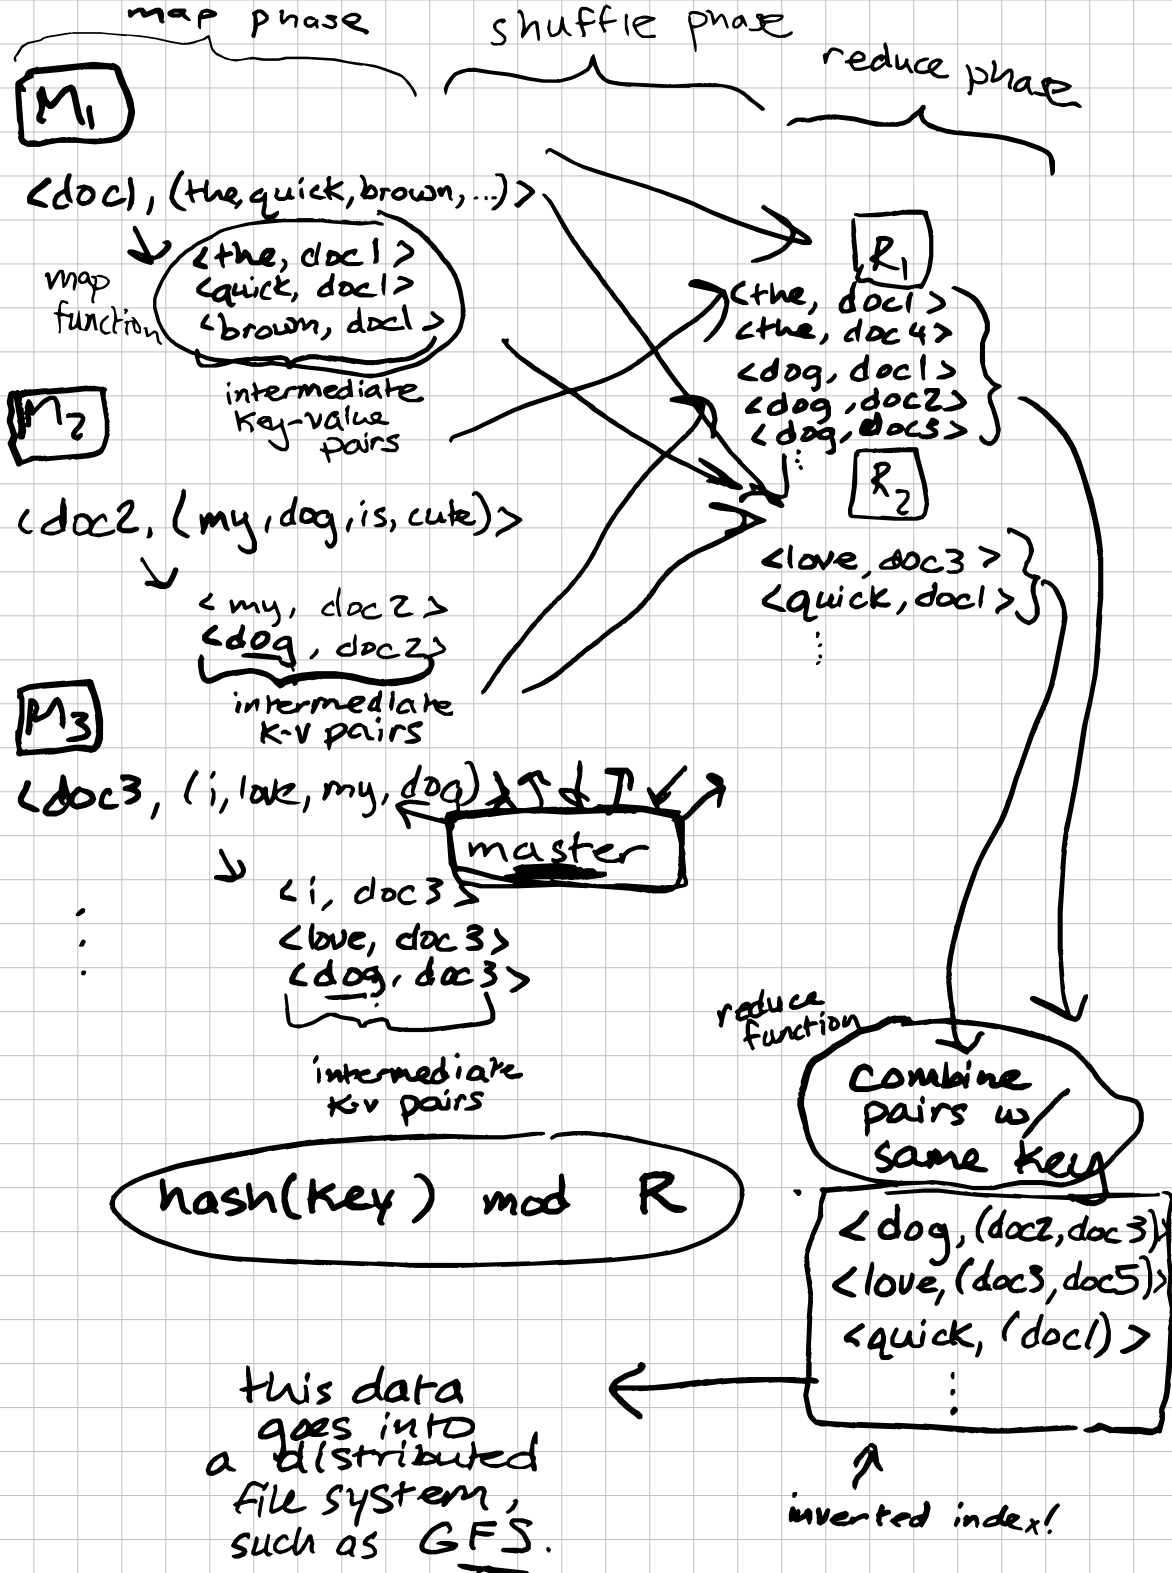 map phase
shuffle phase
reduce phase
M1
<doc1, (the,quick,brown,...)>
map
function
<the, doc1>
<quick, doc1>
<brown, doc1>
intermediate
key-value
pairs
M2
<doc2, (my,dog,is,cute)>
<my, doc2>
<dog, doc2>
intermediate
k-v pairs
M3
<doc3, (i,love,my,dog)>
master
<i, doc3>
<love, doc3>
<dog, doc3>
intermediate
k-v pairs
R1
<the, doc1>
<the, doc4>
<dog, doc1>
<dog, doc2>
<dog, doc3>
R2
<love, doc3>
<quick, doc1>
reduce
function
combine
pairs w/
same key
hash(key) mod R
<dog, (doc2,doc3)>
<love, (doc3,doc5)>
<quick, (doc1)>
inverted index!
this data
goes into
a distributed
file system,
such as GFS.